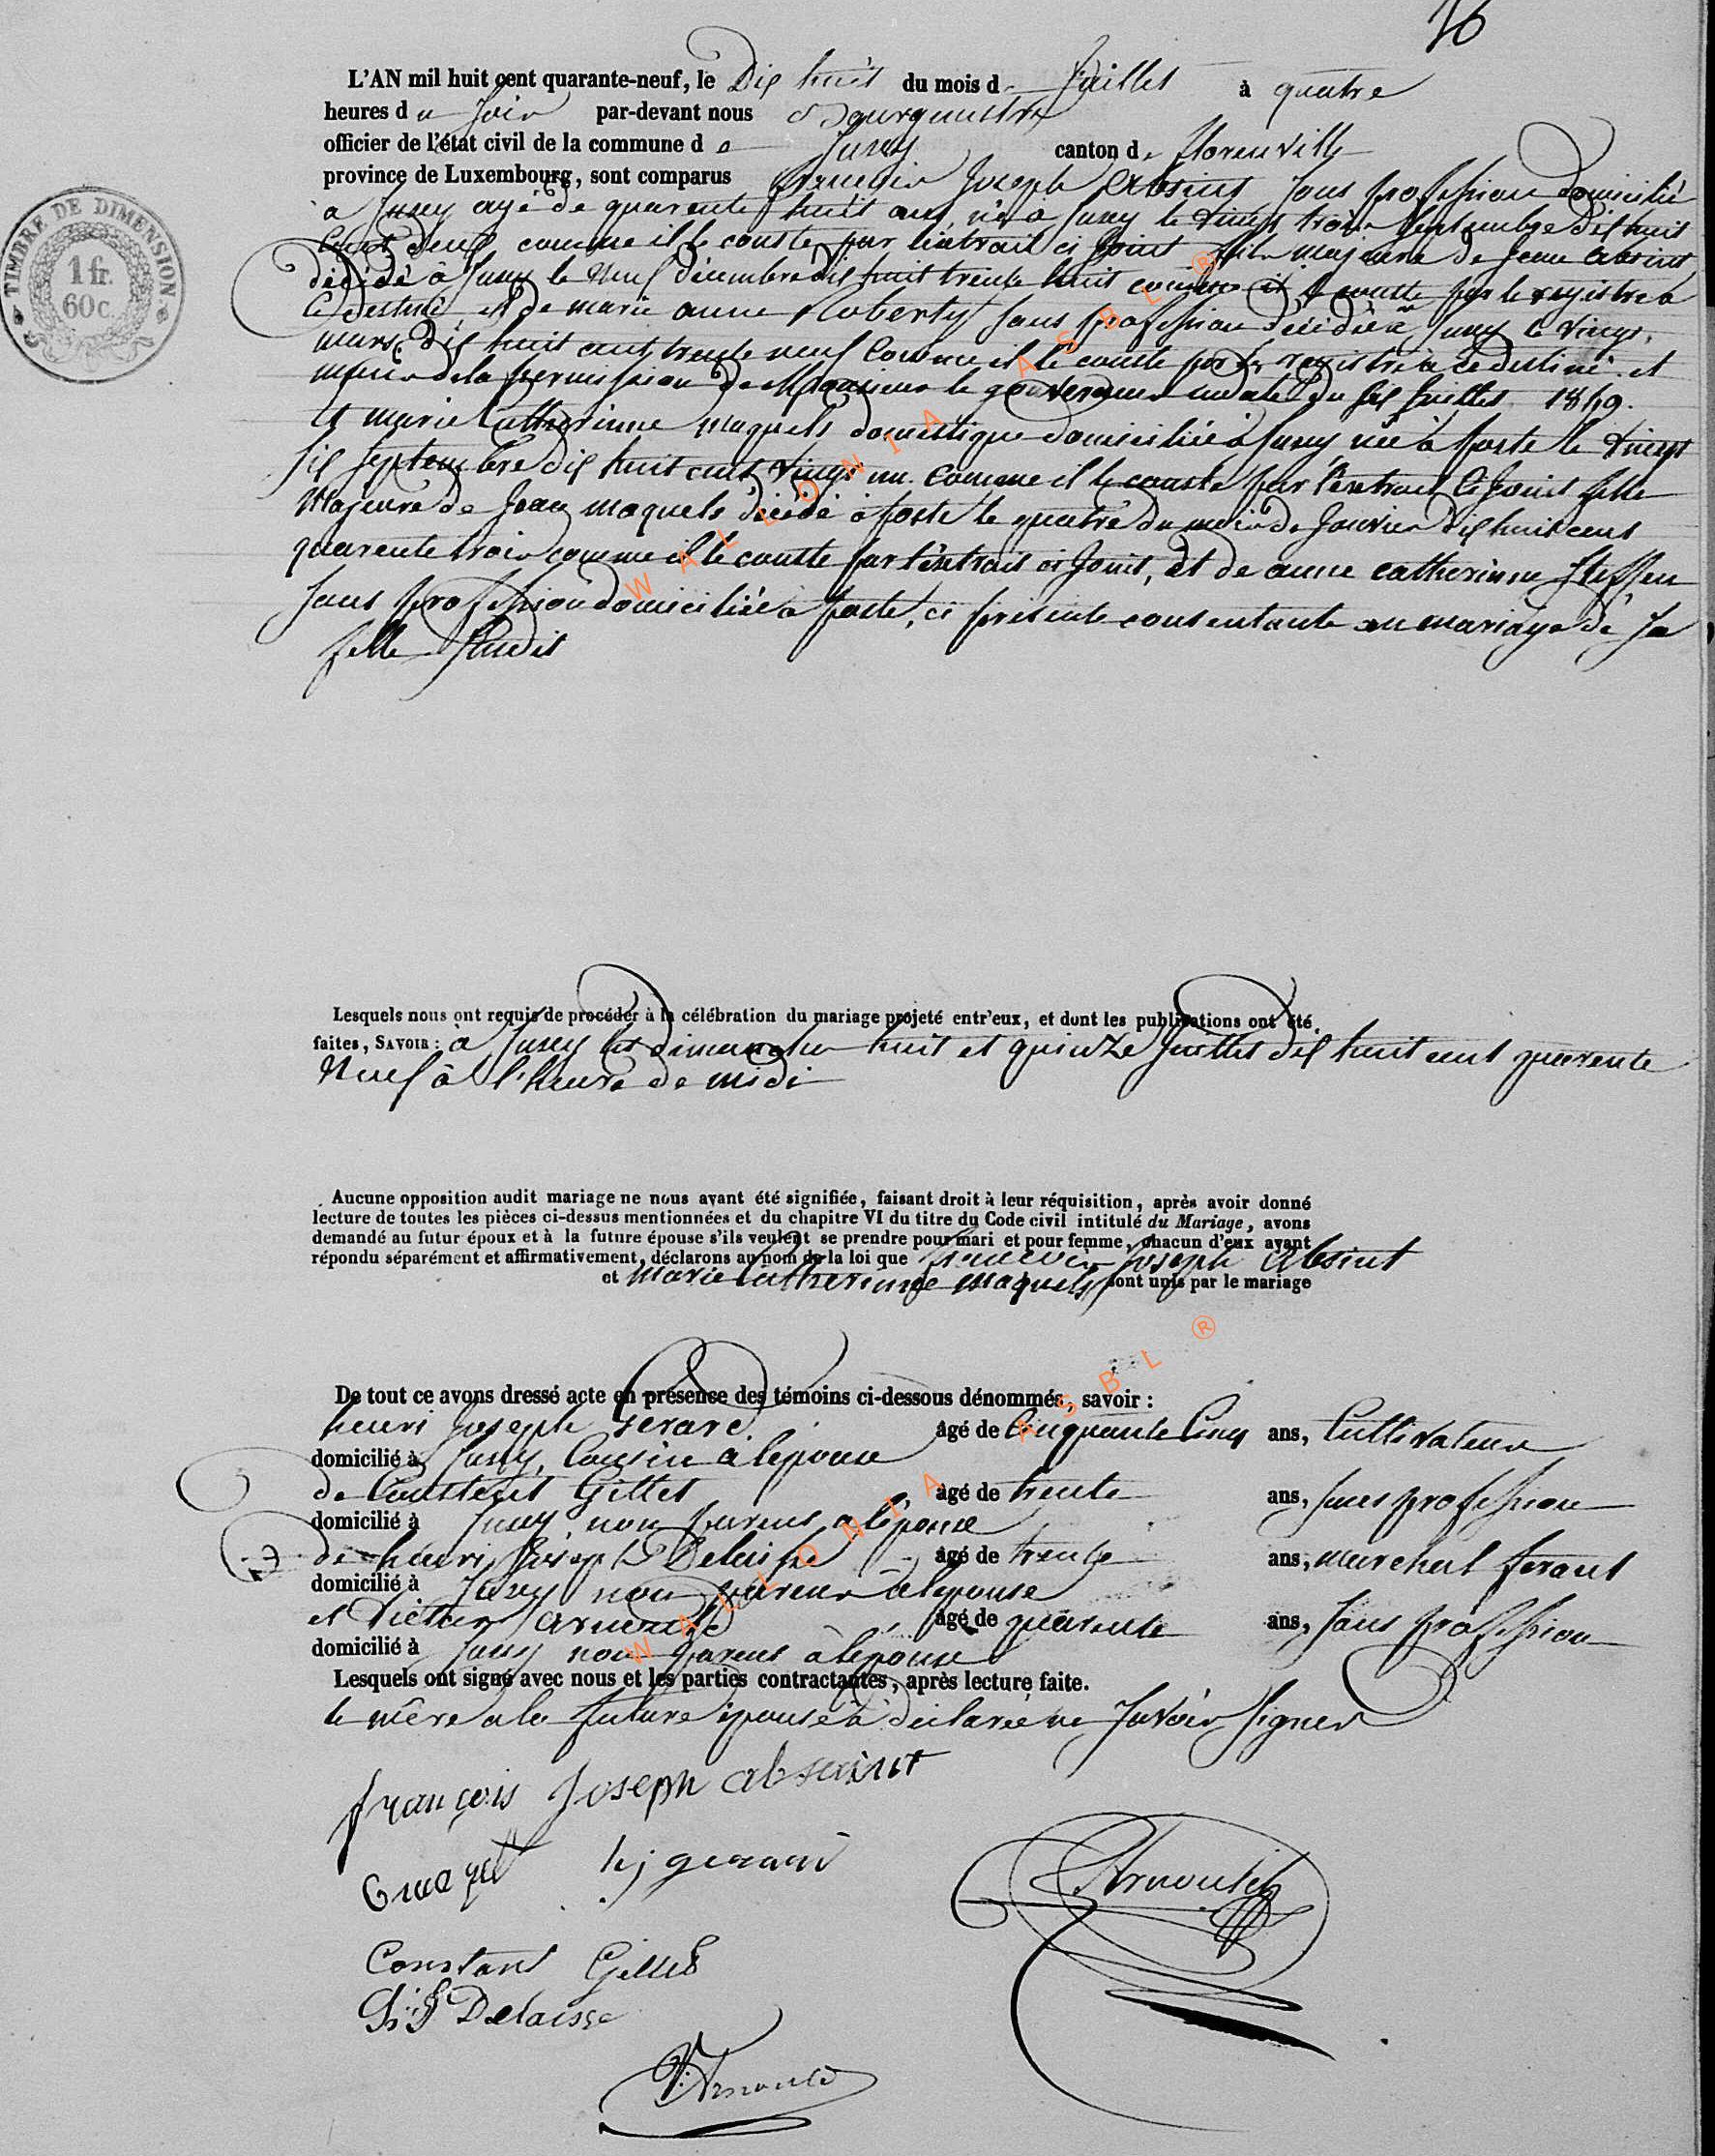 16
L'AN mil huit cent quarante-neuf, le Dix huit du mois de Juillet à quatre
heures du soir par-devant nous Bourguemestre
officier de l'état civil de la commune de Jusey canton de florenville
province de Luxembourg, sont comparus francois Joseph Absint sans profession domicilié
à Jusey agé de quarente huit ans, né à Jusey le vingt trois Septembre dix huit
cent comme il le conste par l'extrait ci joint fils majeure de Jean absint
décidé à Jusey le Neuf décembre dix huit trente huit comme il conste par le registre a
ce destiné et de marie anne Roberty sans profession décidée a Jusey le vingt
mars dix huit cent trente neuf Comme il le conste par le registre à ce destiné. et
muni de la permission de Monsieur le gouverneur en date du six Juillet 1849.
et marie Catherinne maquels domestique domiciliée à Jusey née à poste le vingt
six septembre dix huit cent vingt un. Comme il le conste par l'extrait ci Joint fille
Majeure de Jean maquels décidé à poste le quatre du mois de Janvier dix huit cent
quarente trois comme il le conste par l'extrait ci Joint, et de anne catherinne Steffen
sans profession domiciliée à poste, ci présente consentante au mariage de sa
fille Sudit
TIMBRE DE DIMENSION
1 fr.
60 c.
Lesquels nous ont requis de procéder à la célébration du mariage projeté entr'eux, et dont les publications ont été
faites, SAVOIR : à Jusey les dimanche huit et quinze Juillet dix huit cent quarente
Neuf à l'heure de midi
Aucune opposition audit mariage ne nous ayant été signifiée, faisant droit à leur réquisition, après avoir donné
lecture de toutes les pièces ci-dessus mentionnées et du chapitre VI du titre du Code civil intitulé du Mariage, avons
demandé au futur époux et à la future épouse s'ils veulent se prendre pour mari et pour femme, chacun d'eux ayant
répondu séparément et affirmativement, déclarons au nom de la loi que francois Joseph Absint
et marie Catherinne maquels sont unis par le mariage
De tout ce avons dressé acte en présence des témoins ci-dessous dénommés, savoir :
henri Joseph Gerard. âgé de Cinquante Cinq ans, Cultivateur
domicilié à Jusey, Cousin à l'epouse
de Constent Gillet âgé de trente ans, sans profession
domicilié à Jusey non parens a l'épouse
de henri Joseph Delaisse âgé de trente ans, marchal ferant
domicilié à Jusey non parens à l'epouse
et Victor Arnould âgé de quarente ans, sans profession
domicilié à Jusey non parens à l'epouse
Lesquels ont signé avec nous et les parties contractantes, après lecture faite.
le mère a la future épouse à déclarée ne savoir signer
françois Joseph absaint
hj gerard
Arnould
Constant Gillet
Delaisse
V. Arnould
WALLONIA ASBL ®
WALLONIA ASBL ®